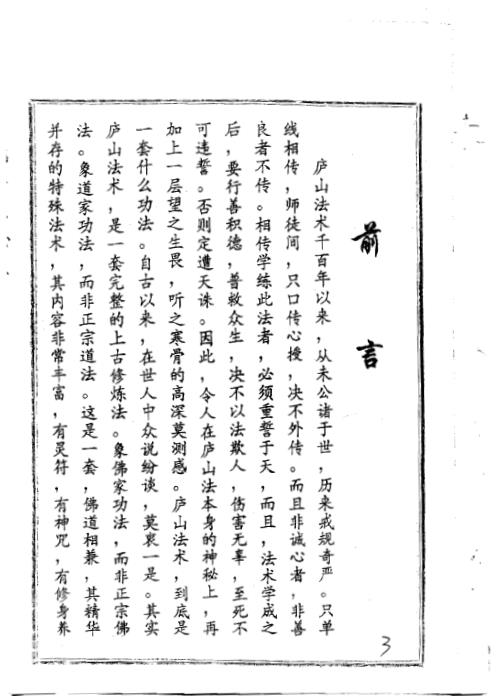 前言
庐山法术千百年以来，从未公诸于世，历来戒规奇严。只单
线相传，师徒间，只口传心授，决不外传。而且非诚心者，非善
良者不传。相传学练此法者，必须重誓于天，而且，法术学成之
后，要行善积德，普救众生，决不以法欺人，伤害无辜，至死不
可违誓。否则定遭天诛。因此，令人在庐山法本身的神秘上，再
加上一层望之生畏，听之寒骨的高深莫测感。庐山法术，到底是
一套什么功法。自古以来，在世人中众说纷谈，莫衷一是。其实
庐山法术，是一套完整的上古修炼法。象佛家功法，而非正宗佛
法。象道家功法，而非正宗道法。这是一套，佛道相兼，其精华
并存的特殊法术，其内容非常丰富，有灵符，有神咒，有修身养
3